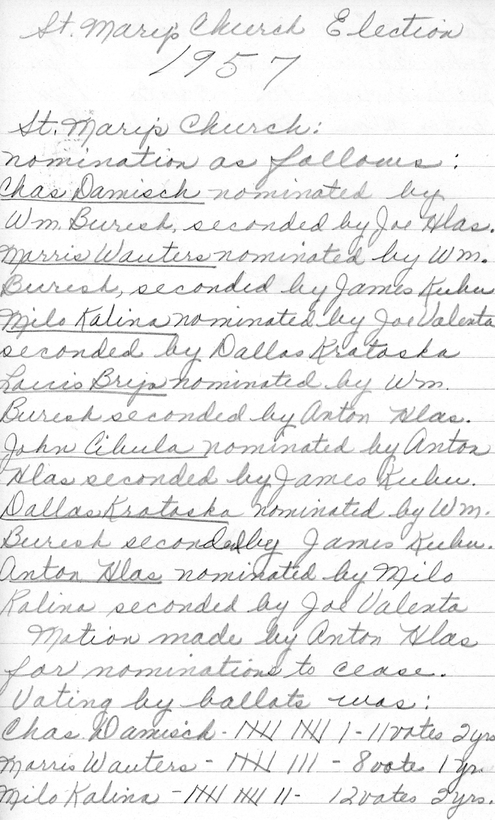 St. Mary's Church Election
1957
St. Mary's Church:
nomination as follows:
Chas Damisch nominated by
Wm. Buresh, seconded by Joe Hlas.
Morris Wauters nominated by Wm.
Buresh, seconded by James Kubu
Milo Kalina nominated by Joe Valenta
seconded by Dallas Krataska
Louis Brija nominated by Wm.
Buresh seconded by Anton Hlas.
John Cibula nominated by Anton
Hlas seconded by James Kubu.
Dallas Krataska nominated by Wm.
Buresh seconded by James Kubu.
Anton Hlas nominated by Milo
Kalina seconded by Joe Valenta
Motion made by Anton Hlas
for nominations to cease.
Voting by ballots was:
Chas. Damisch - 1 - 11 votes 2 yrs
Morris Wauters - III - 8 vote 1 yr.
Milo Kalina - II - 12 votes 2 yrs.